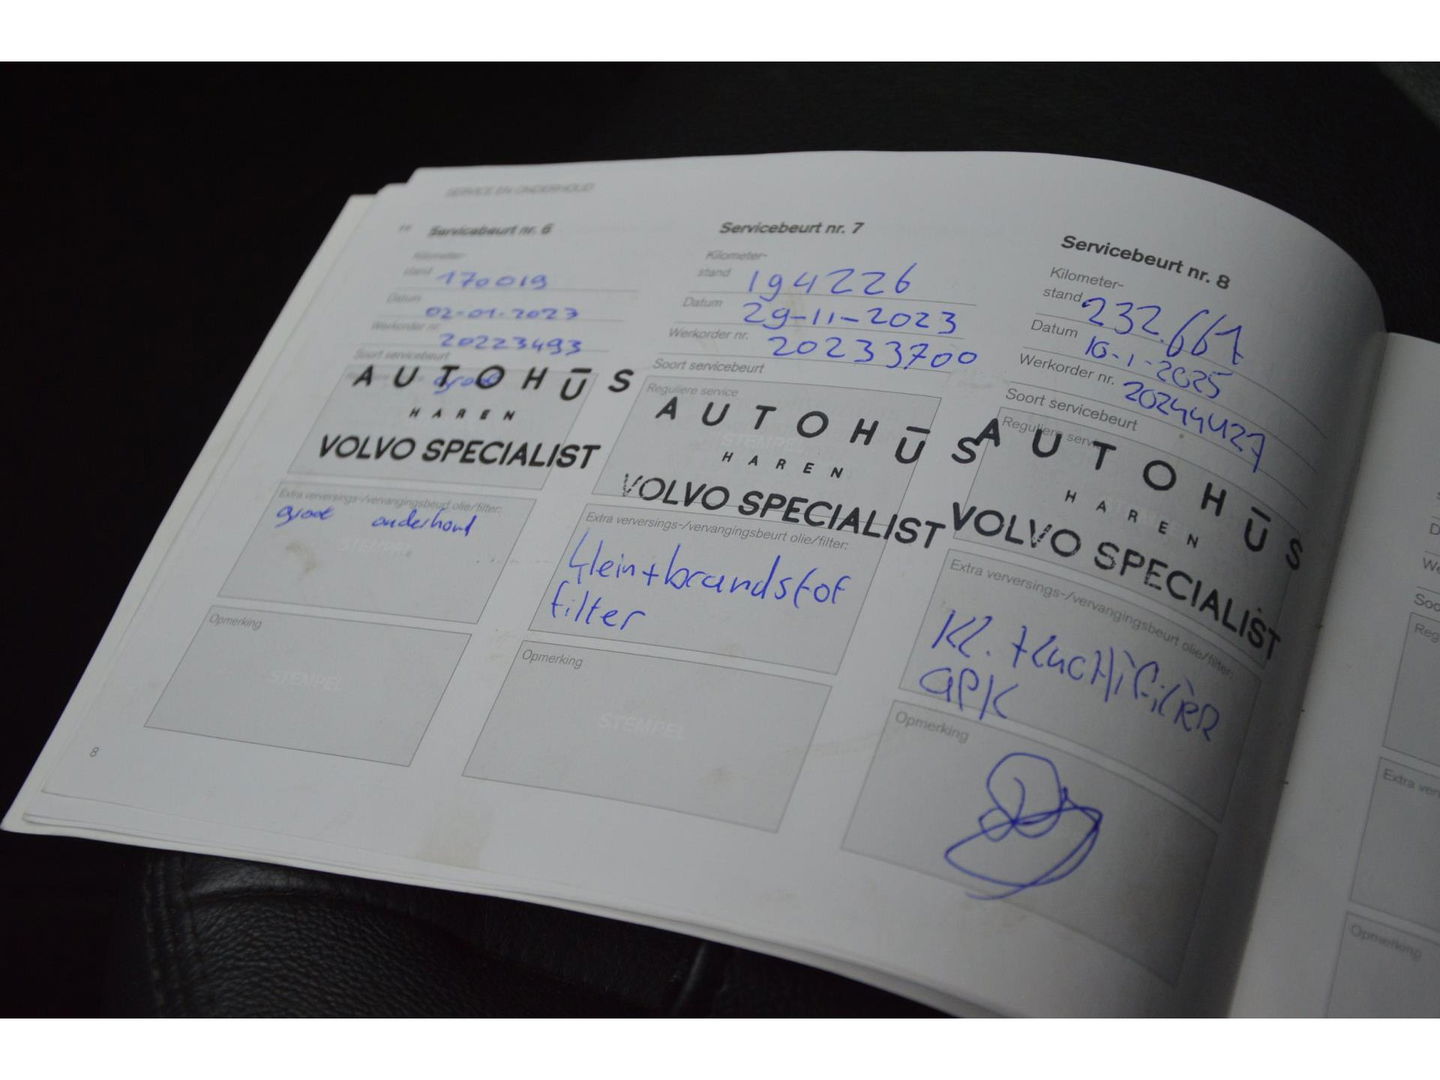 SERVICE EN ONDERHOUD
Servicebeurt nr. 6
Kilometer-
stand 170019
Datum 02-01-2023
Werkorder nr. 20223493
Soort servicebeurt
groot
AUTOHŪS
HAREN
VOLVO SPECIALIST
Extra verversings-/vervangingsbeurt olie/filter:
groot onderhoud
STEMPEL
Opmerking
STEMPEL
8
Servicebeurt nr. 7
Kilometer-
stand 194226
Datum 29-11-2023
Werkorder nr. 20233700
Soort servicebeurt
Reguliere service
AUTOHŪS
HAREN
VOLVO SPECIALIST
Extra verversings-/vervangingsbeurt olie/filter:
klein+brandstof
filter
Opmerking
STEMPEL
Servicebeurt nr. 8
Kilometer-
stand 232.661
Datum 16-1-2025
Werkorder nr. 20244427
Soort servicebeurt
Reguliere service
AUTOHŪS
HAREN
VOLVO SPECIALIST
Extra verversings-/vervangingsbeurt olie/filter:
Kl. + luchtfilter
APK
Opmerking
Opmerking